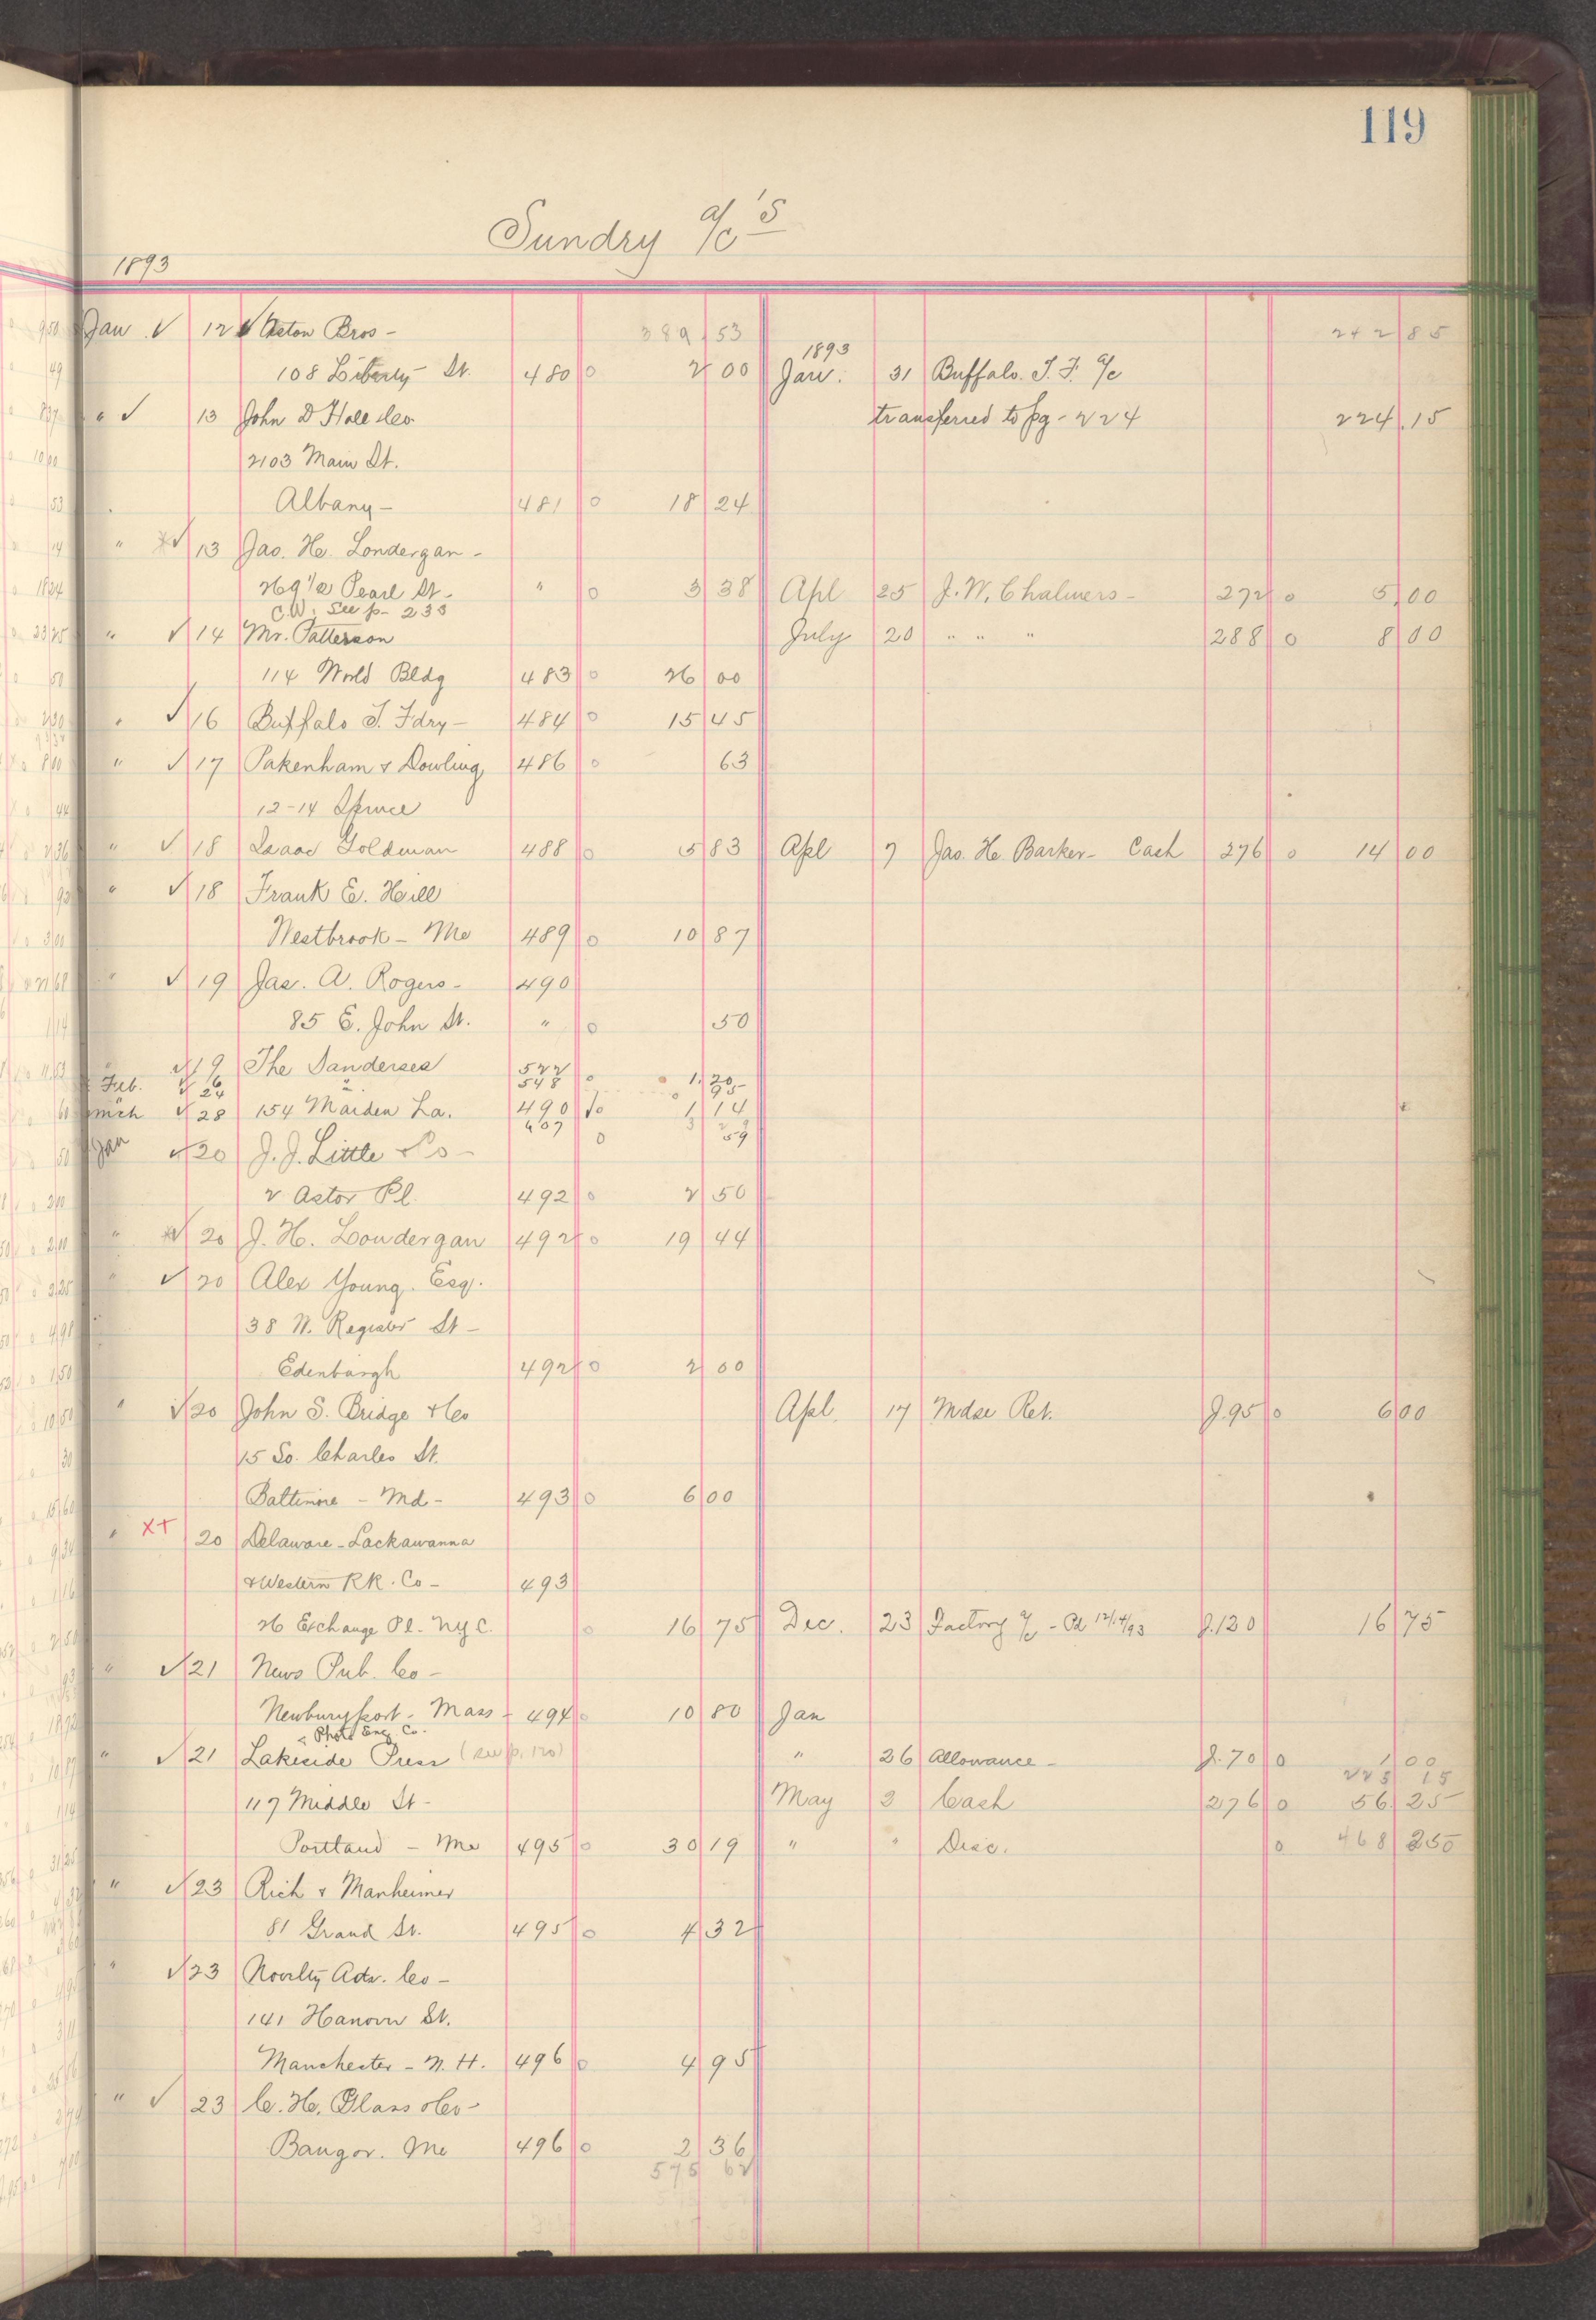 119
Sundry a/c's
1893
Jan 12 Acton Bros - 389 53 242 85
108 Liberty St. 480 0 2 00 1893 Jan. 31 Buffalo. T. F. a/c
" 13 John D Hall & Co transferred to pg - 224 224.15
2103 Main St.
Albany - 481 0 18 24
" 13 Jas. H. Londergan -
269 1/2 Pearl St - " 0 3 38 Apl 25 J. W. Chalmers - 272 0 5,00
C.W. See p - 233
" 14 Mr. Patterson July 20 " " " 288 0 8 00
114 World Bldg 483 0 26 00
" 16 Buffalo T. Fdry - 484 0 15 45
" 17 Pakenham & Dowling 486 0 63
12-14 Spruce
" 18 Isaac Goldman 488 0 5 83 Apl 7 Jas. H. Barker - Cash 276 0 14 00
" 18 Frank E. Hill
Westbrook - Me 489 0 10 87
" 19 Jas. A. Rogers - 490
85 E. John St. " 0 50
" 19 The Sanderses 522
Feb. 6 " 548 0 1.20
24 95
mch 28 154 Maiden La. 490 0 1 14
607 0 59
Jan 20 J. J. Little Co -
2 Astor Pl. 492 0 2 50
" 20 J. H. Londergan 492 0 19 44
" 20 Alex Young. Esq.
38 W. Register St -
Edenburgh 492 0 2 00
" 20 John S. Bridge & Co Apl. 17 Mdse Ret. J.95 0 6 00
15 So. Charles St.
Baltimore - Md - 493 0 6 00
" X+ 20 Delaware - Lackawanna
& Western RR. Co - 493
26 Exchange Pl. - N.Y.C. 0 16 75 Dec. 23 Factory a/c - Pd 12/14/93 J.120 16 75
" 21 News Pub. Co -
Newburyport - Mass - 494 0 10 80 Jan
& Photo Eng. Co.
" 21 Lakeside Press (see p. 120) " 26 Allowance - J.70 0 1 00
225 15
117 Middle St - May 2 Cash 276 0 56.25
Portland - Me 495 0 30 19 " " Disc. 0 468 250
" 23 Rich & Manheimer
81 Grand St. 495 0 4 32
" 23 Novelty Adv. Co -
141 Hanover St.
Manchester - N. H. 496 0 4 95
" 23 C. H. Glass & Co -
Bangor. Me 496 0 2 36
575 62